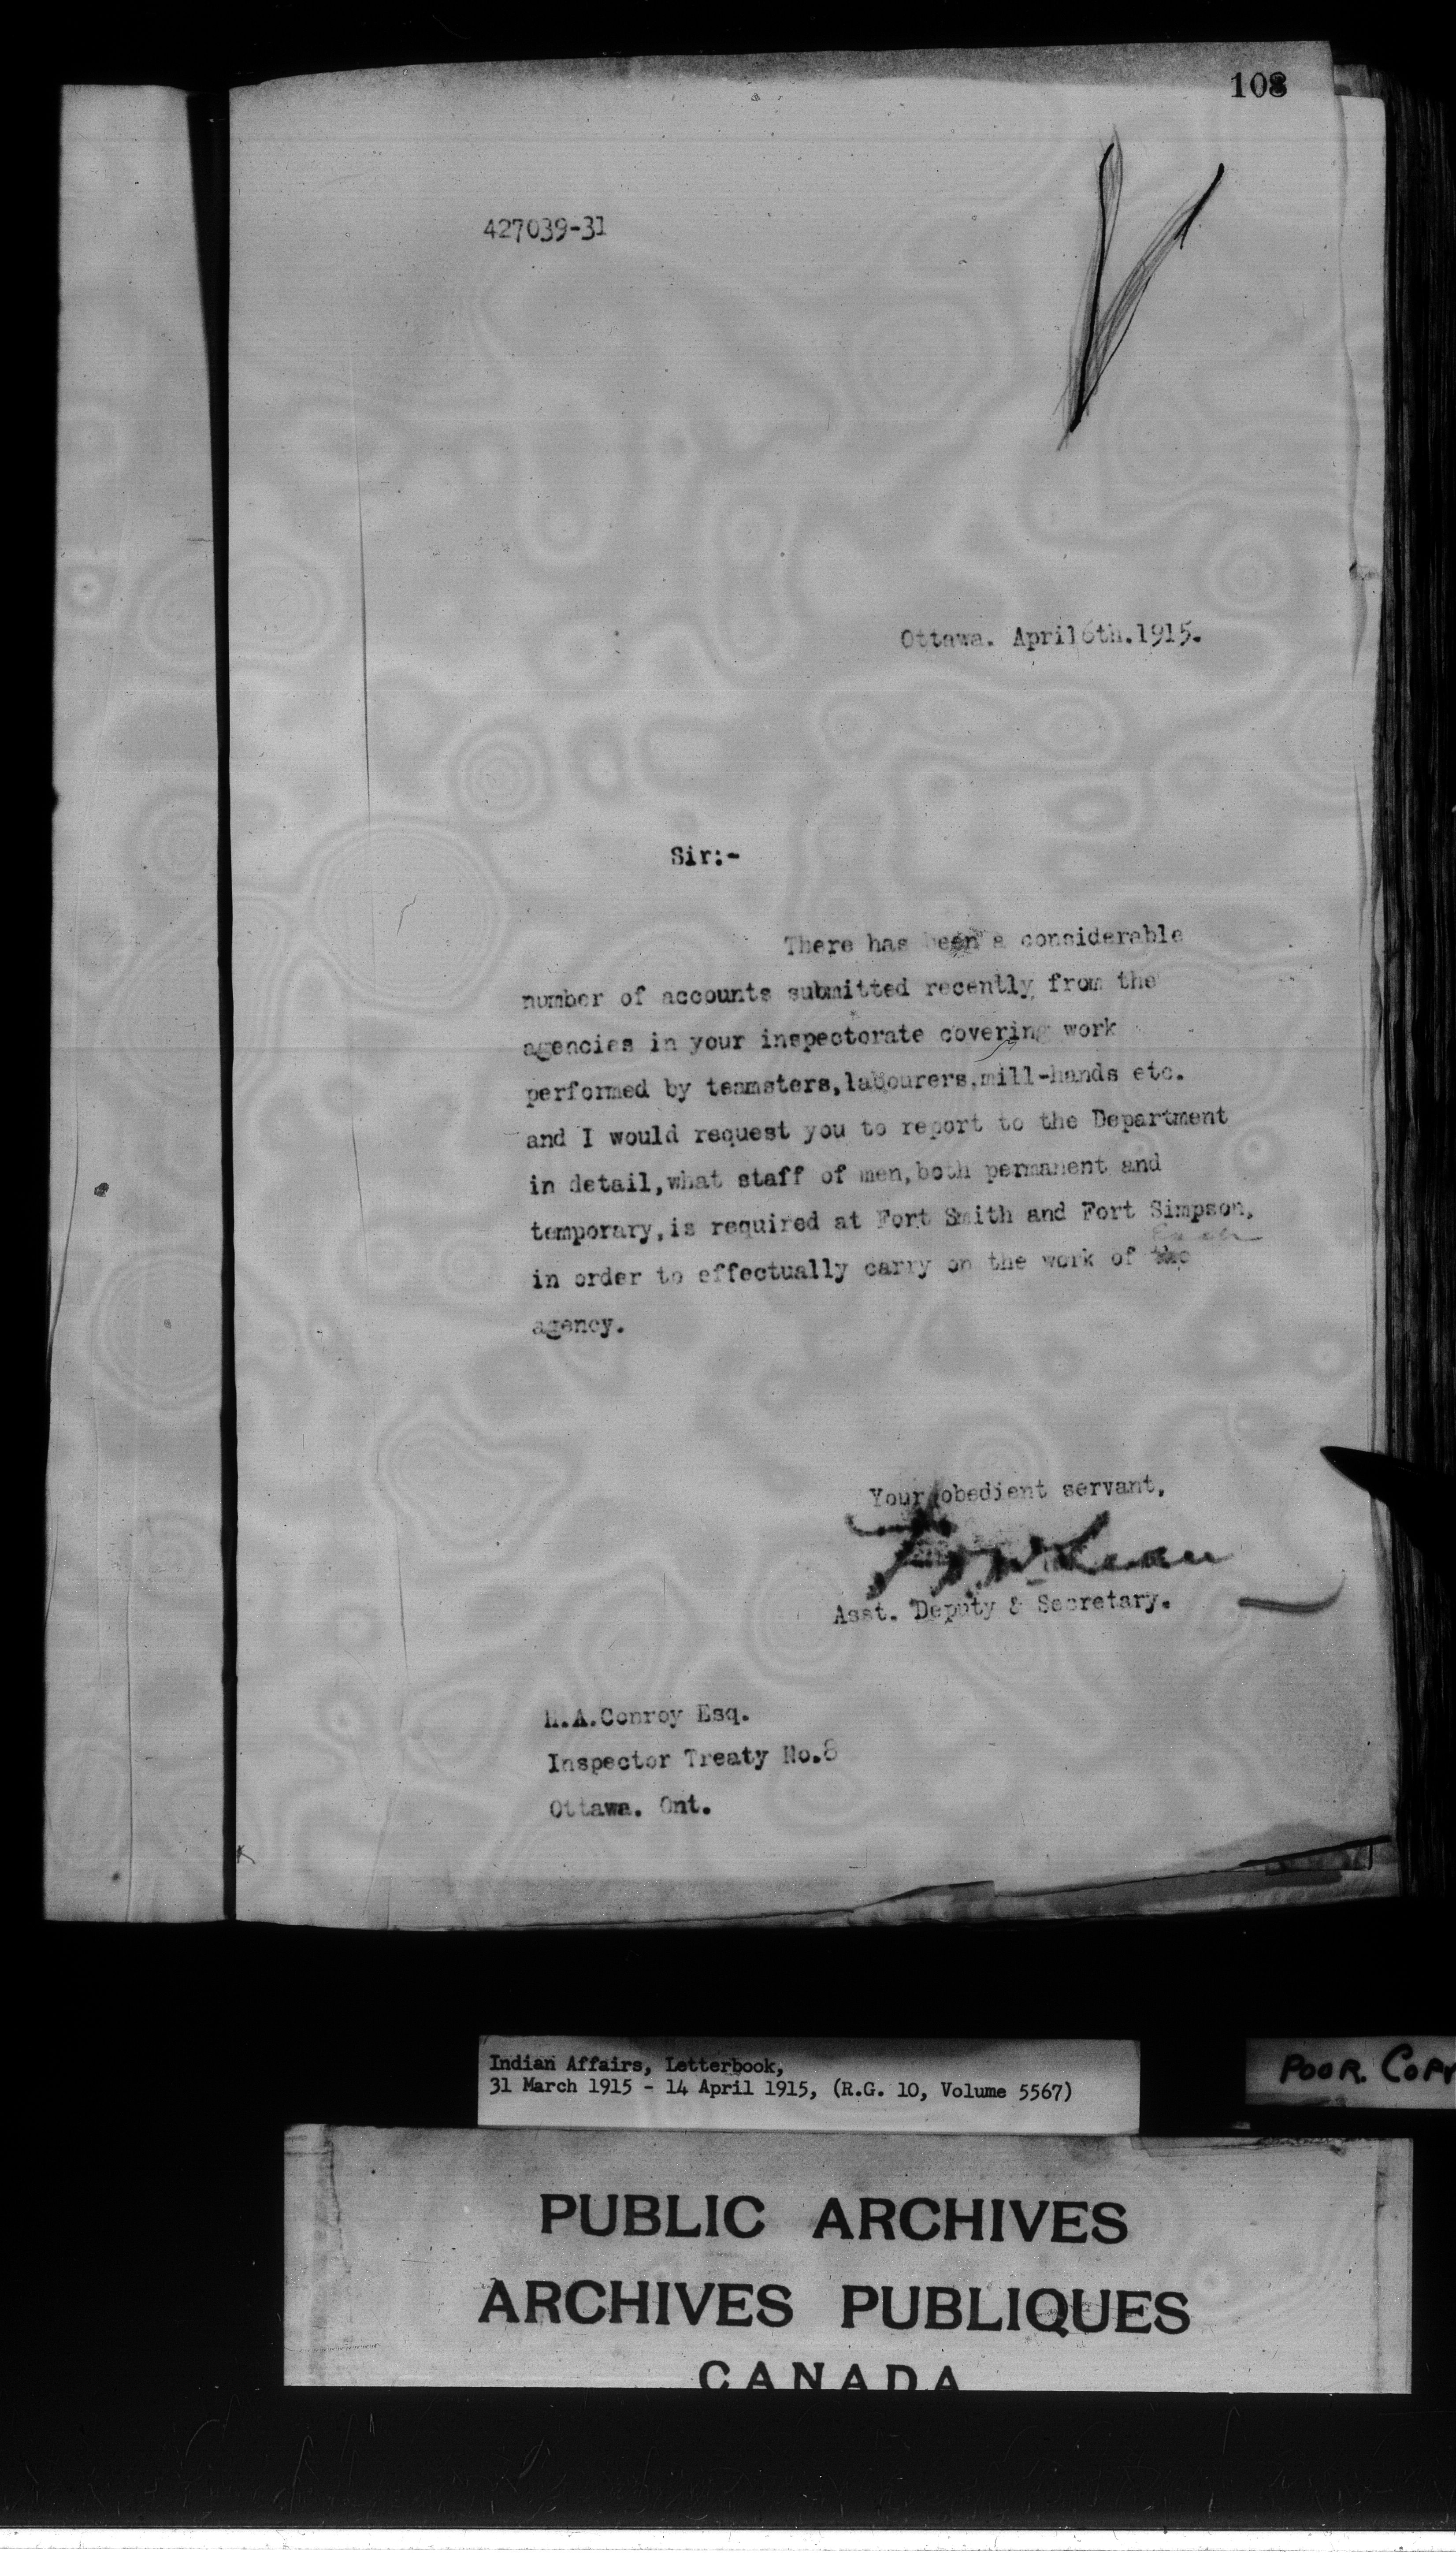 108
427039-31
Ottawa. April 6th. 1915.
Sir:-
There has been a considerable
number of accounts submitted recently from the
agencies in your inspectorate covering work
performed by teamsters, labourers, mill-hands etc.
and I would request you to report to the Department
in detail, what staff of men, both permanent and
temporary, is required at Fort Smith and Fort Simpson,
each
in order to effectually carry on the work of the
agency.
Your obedient servant,
Asst. Deputy & Secretary.
H.A.Conroy Esq.
Inspector Treaty No.8
Ottawa. Ont.
Indian Affairs, Letterbook,
31 March 1915 - 14 April 1915, (R.G. 10, Volume 5567)
POOR COPY
PUBLIC ARCHIVES
ARCHIVES PUBLIQUES
CANADA